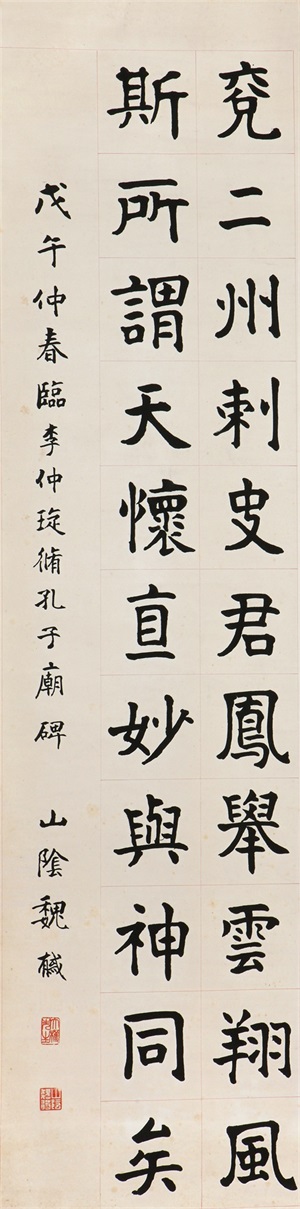 兗二州刺史君鳳舉雲翔風
斯所謂天懷直妙與神同矣
戊午仲春臨李仲琁脩孔子廟碑 山陰魏戫